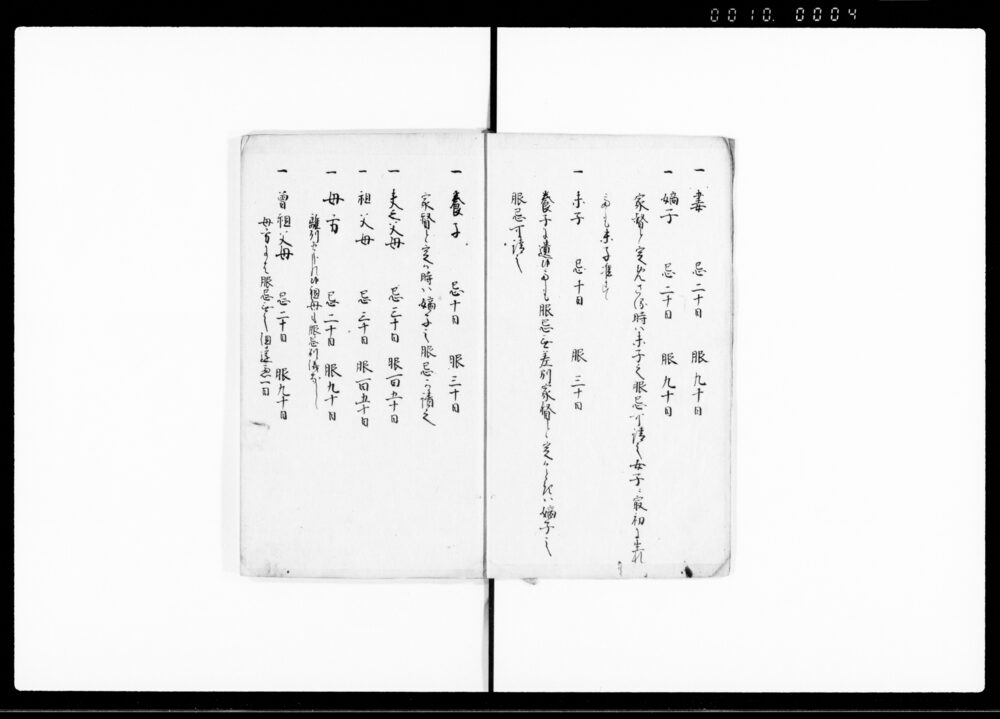 0010. 0004
一 妻 忌二十日 服九十日
一 嫡子 忌二十日 服九十日
家督と定めさる時ハ末子之服忌可請之女子ハ最初に生れ
ても末子准す
一 末子 忌十日 服三十日
養子に遣申ても服忌無差別家督と定る時ハ嫡子之
服忌可請之
一 養子 忌十日 服三十日
家督と定る時ハ嫡子之服忌可請之
一 夫之父母 忌三十日 服百五十日
一 祖父母 忌三十日 服百五十日
一 母方 忌二十日 服九十日
離別祖母も服忌別儀なし
一 曽祖父母 忌二十日 服九十日
母方には服忌無之遠慮一日